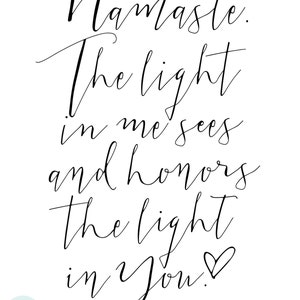 Namaste.
The light
in me sees
and honors
the light
in you.♡